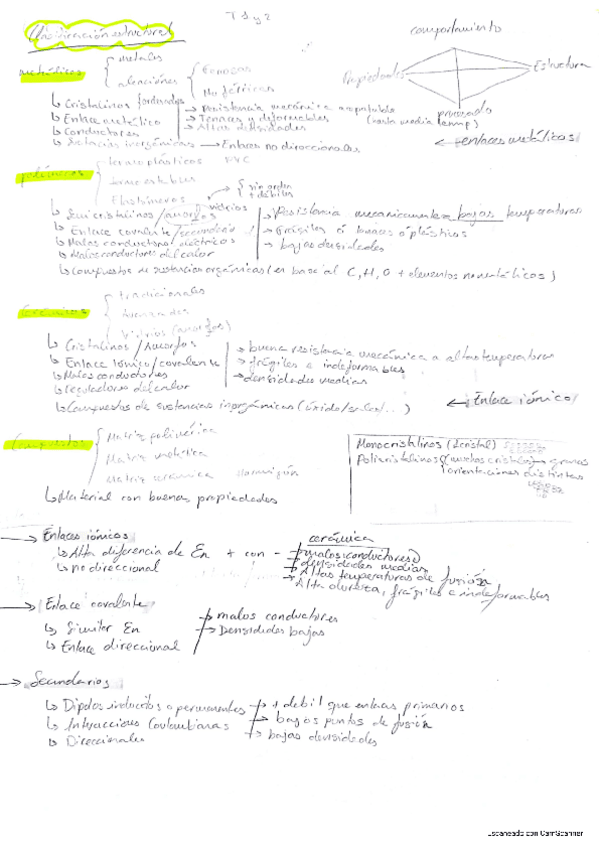 T 1 y 2
Clasificación estructural
metálicos
metales
aleaciones
Ferrosas
No férricas
comportamiento
Propiedades
Estructura
procesado
↳ Cristalinos
↳ Enlace metálico
↳ Conductores
↳ Sustancias inorgánicas → Enlaces no direccionales
→ Resistencia mecánica aceptable (hasta media temp)
→ Tenaces y deformables
→ Altas densidades
← enlaces metálicos
polímeros
termoplásticos PVC
termoestables
Elastómeros
sin orden
+ débiles
↳ Semicristalinos/amorfos vidrios
↳ Enlace covalente/secundario
↳ Malos conductores eléctricos
↳ Malos conductores del calor
→ Resistencia mecanicamente a bajas temperaturas
→ Frágiles ó plásticos
→ bajas densidades
↳ Compuestos de sustancias orgánicas (en base al C, H, O + elementos no metálicos)
Cerámicos
tradicionales
Avanzados
Vidrios (amorfos)
↳ Cristalinos/Amorfos
↳ Enlace Iónico/covalente
↳ Malos conductores
↳ reguladores del calor
→ buena resistencia mecánica a altas temperaturas
→ frágiles e indeformables
→ densidades medias
↳ Compuestos de sustancias inorgánicas (óxido/sales/...)
← Enlace iónico
Compuestos
Matriz polimérica
Matriz metálica
Matriz cerámica hormigón
↳ Material con buenas propiedades
Monocristalinos (1 cristal)
Policristalinos (muchos cristales, granos
orientaciones distintas
→ Enlaces iónicos
↳ Alta diferencia de En + con -
↳ no direccional
cerámica
→ malos conductores
→ densidades medias
→ Altas temperaturas de fusión
→ Alta dureza, frágiles e indeformables
→ Enlace covalente
↳ Similar En
↳ Enlace direccional
→ malos conductores
→ Densidades bajas
→ Secundarios
↳ Dipolos inducidos o permanentes
↳ Interacciones Coulombianas
↳ Direccionales
→ + débil que enlaces primarios
→ bajos puntos de fusión
→ bajas densidades
Escaneado con CamScanner